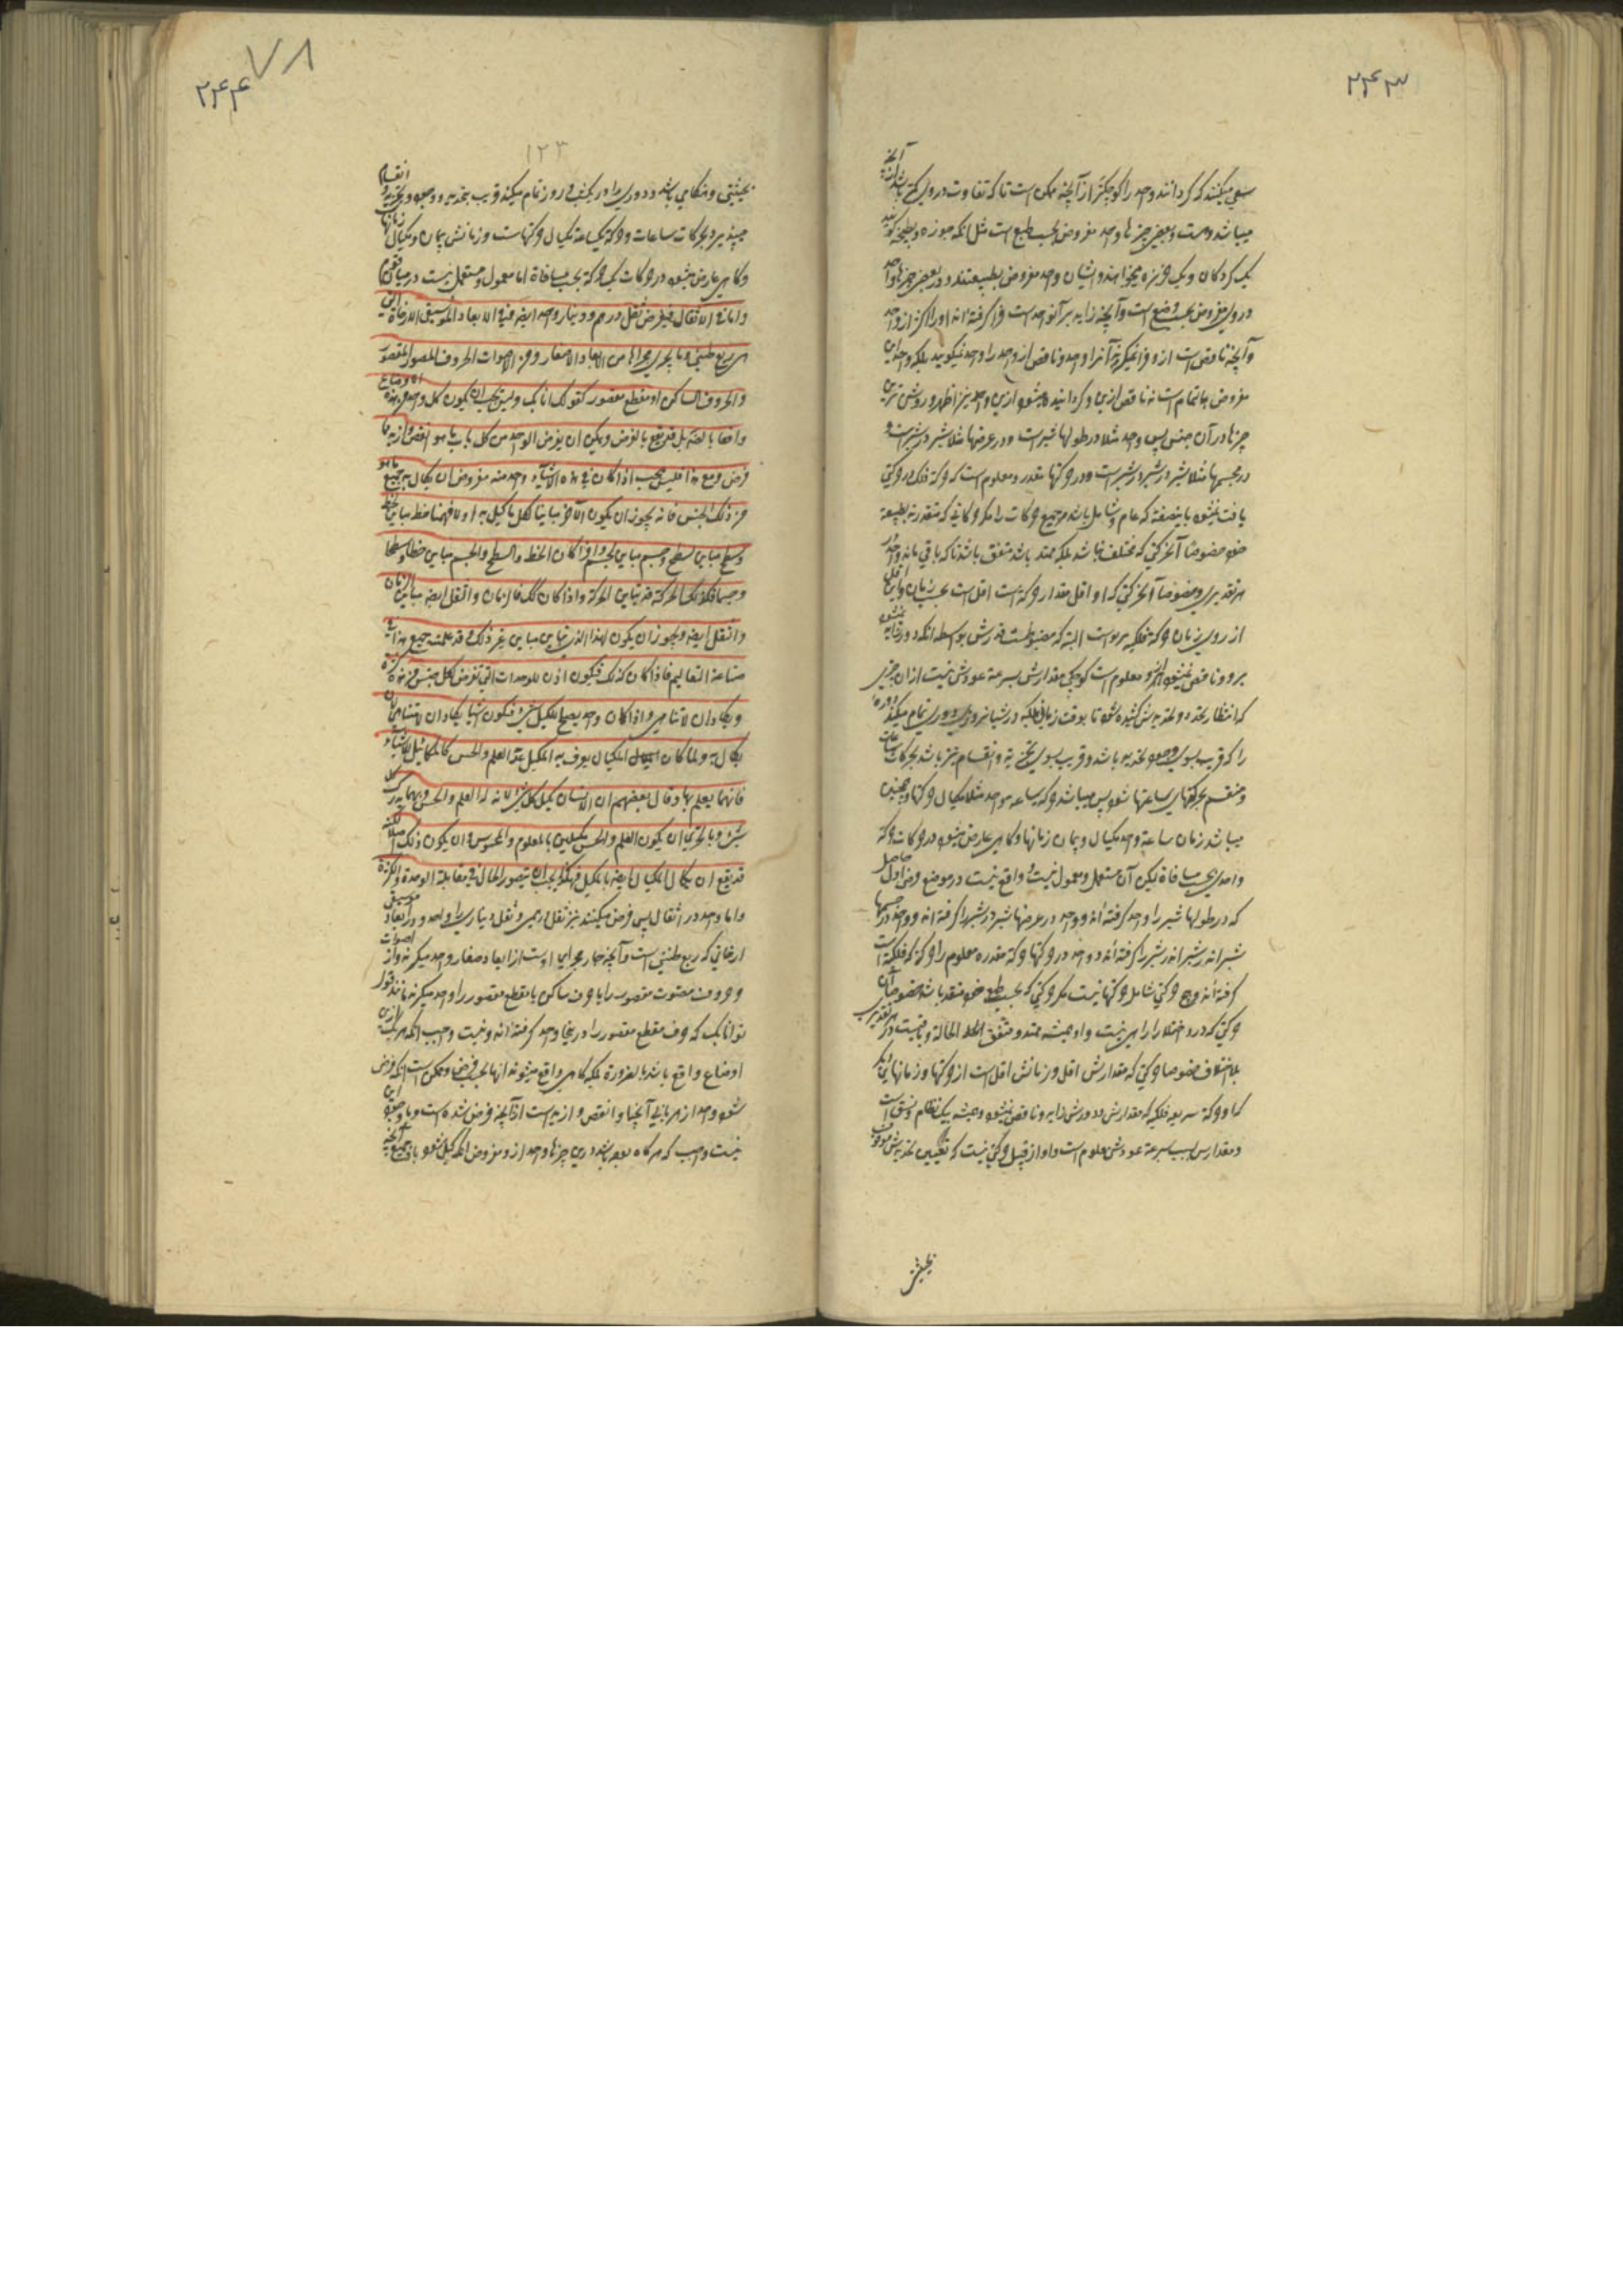 ۲۴۳
سعی میکنند که کردانند واحد را کوچکتر از آنچه ممکن است تا که تفاوت در وی
میباشد و بعضی چیزها واحد مفروض بحسب طبع است مثل آنکه جوزه و بطیخه
یک کردکان و یک خربزه میخوانند و ایشان واحد مفروض بطبیعتند و در بعضی چیزها واحد
در وی مفروض بحسب وضع است و آنچه زاید بر آنواحد است فرا گرفته اند او را اکثر از واحد
و آنچه ناقص است از و فرا نمیگیرند آنرا واحد و ناقص از واحد را واحد نمیگویند بلکه واحد این
مفروض بتمام است نه ناقص ازین و کردانیده میشود ازین واحد نیز اظهر و روشن ترین
چیزها در آن جنس پس واحد مثلا در طولها شبر است و در عرضها مثلا شبر در شبر است و
در مجسمها مثلا شبر در شبر در شبر است و در حرکتها مقدره معلوم است که حرکة فلک و حرکتی
یافت نمیشود باین صفته که عام و شامل باشد مر جمیع حرکات را مکر حرکاتی که متقدرند بطبیعة
خود خصوصا آنحرکتی که مختلف نباشد بلکه ممتد باشد متفق باشد تا که باقی ماند واحد در
هر تقدیری و خصوصا آنحرکتی که او اقل مقدار حرکة است اقل است بحسب زمان و این اقل
از روی زمان حرکة فلکیه یومیه است البته که مضبوطست قدرش بواسطه آنکه دور زاید نمیشود
برو و ناقص نمیشود ازو و معلوم است کوچکی مقدارش بسرعة عودش نیست از آن چیزی
که انتظار تجدد و تجدیدش کشیده شود تا بوقت زمانی بلکه در شبانروزی دوری تمام میکند دوره
را که قریب بسوی وجود تجدید باشد و قریب بسوی تجزیه و انقسام نیز باشد بحرکات ساعات
و منقسم بحرکتهای ساعتها شود پس میباشد حرکة ساعة واحد مثلا مکیال حرکتها و همچنین
میباشد زمان ساعة واحد مکیال و پیمان زمانها و کاهی عارض میشود در حرکات حرکة
واحدی بحسب مسافة لیکن آن مستعمل و معمول نیست و واقع نیست در موضع فرض اول حاصل
که در طولها شبر را واحد کرفته اند و واحد در عرضها شبر در شبر را کرفته اند و واحد در جسمها
شبر اندر شبر اندر شبر را کرفته اند و واحد در حرکتها حرکة مقدره معلوم را و حرکة که فلکیة است
کرفته اند و هیچ حرکتی شامل حرکتها نیست مکر حرکتی که بحسب طبع خود متقدر باشد خصوصا آن
حرکتی که در و اختلاف را راهی نیست و او همیشه ممتد و متفق الحالة و باقیست در هر تقدیری
بلا اختلاف خصوصا حرکتی که مقدارش اقل و زمانش اقل است از حرکتها و زمانهای دیکر
که او حرکة سریعه فلکیه که مقدارش و دورش زاید و ناقص نمیشود و همیشه بیک نظام و نسق است
و مقدارش بسبب سرعة عودش معلوم است و او از قبیل حرکتی نیست که تعیین تجدیدش موقوف
بحیثیتی
۷۸
۲۴۴
۱۲۳
بحیثیتی و هنکامی باشد و دوری را در یکشب و روز تمام میکند قریب بتجدید و وجود و تجزیه و انقسام
میپذیرد بحرکات ساعات و حرکة یکساعة مکیال حرکتهاست و زمانش پیمان و مکیال زمانها
و کاهی عارض میشود در حرکات یک حرکة بحسب مسافة اما معمول و مستعمل نیست در مسافتی
واما فی الاثقال فیفرض ثقل درهم و دینار واحدا ایضا و فی الابعاد الموسیقی الارخاء التی
هی ربع طنینی و ما یجری مجراها من الابعاد الصغار و من الاصوات الحروف المصوت المقصور
والحروف الساکن او مقطع مقصور کقولک انا بک و لیس یجب ان یکون کل واحد من هذه الاوضاع
واقعا بالضرورة بل قد یقع بالفرض و یمکن ان یفرض الواحد من کل باب ما هو انقص و ازید مما
فرض و مع هذا فلیس یجب اذا کان فی هذه الاشیاء واحد منه مفروض ان یکال به جمیع ما هو
من ذلک الجنس فانه یجوز ان یکون الآخر مباینا لکل ما کیل به اولا فهنا خط مباین لخط
و سطح مباین لسطح و جسم مباین لجسم و اذا کان الخط و السطح و الجسم مباین خطا و سطحا
و جسما فکذلک الحرکة قد تباین الحرکة و اذا کان کذلک فالزمان و الثقل ایضا مباین الزمان
و الثقل ایضا و یجوز ان یکون لهذا الذی تباین مباین غیر ذلک و قد علمت جمیع هذا فی
صناعة التعالیم فاذا کان کذلک فیکون اذن للوحدات التی تفرض لکل جنس من هذه کثرة
و یکاد ان لا تتناهی و اذا کان واحد یصلح للکیل شیء فیکون اشیاء یکاد ان لا یتناهی لان
یکال به و لما کان المکیال یعرف به المکیل عد العلم و الحس کالمکائیل للاشیاء
فانهما یعلم بهما و قال بعضهم ان الانسان مکیل کل شیء لانه له العلم و الحس و بهما یدرک کل
شیء و بالحری ان یکون العلم و الحس مکیلین بالمعلوم و المحسوس و ان یکون ذلک اصلا لکنه
قد یقع ان یکال المکیال ایضا بالمکیل فهکذا یجب ان یتصور الحال فی مقابلة الوحدة و الکثرة
و اما واحد در اثقال پس فرض میکنند نیز ثقل درهمی و ثقل دیناری را واحد و در ابعاد موسیقی
ارخائی که ربع طنینی است و آنچه جار مجرای اوست از ابعاد صغار واحد میکیرند و از اصوات
حروف مصوت مقصور را یا حرف ساکن یا مقطع مقصور را واحد میکیرند مانند قول
تو انا بک که حرف مقطع مقصور را درینجا واحد کرفته اند و نیست واجب آنکه هر یک ازین
اوضاع واقع باشد بالضرورة بلکه کاهی واقع میشوند آنها بحسب فرض و ممکن است آنکه فرض
شود واحد از هر بابی آنچنان و انقص و ازید است از آنچه فرض شده است و با وجود این
نیست واجب که هر کاه بوده باشد درین چیزها واحد از و مفروض آنکه کیل شود باو جمیع آنچه